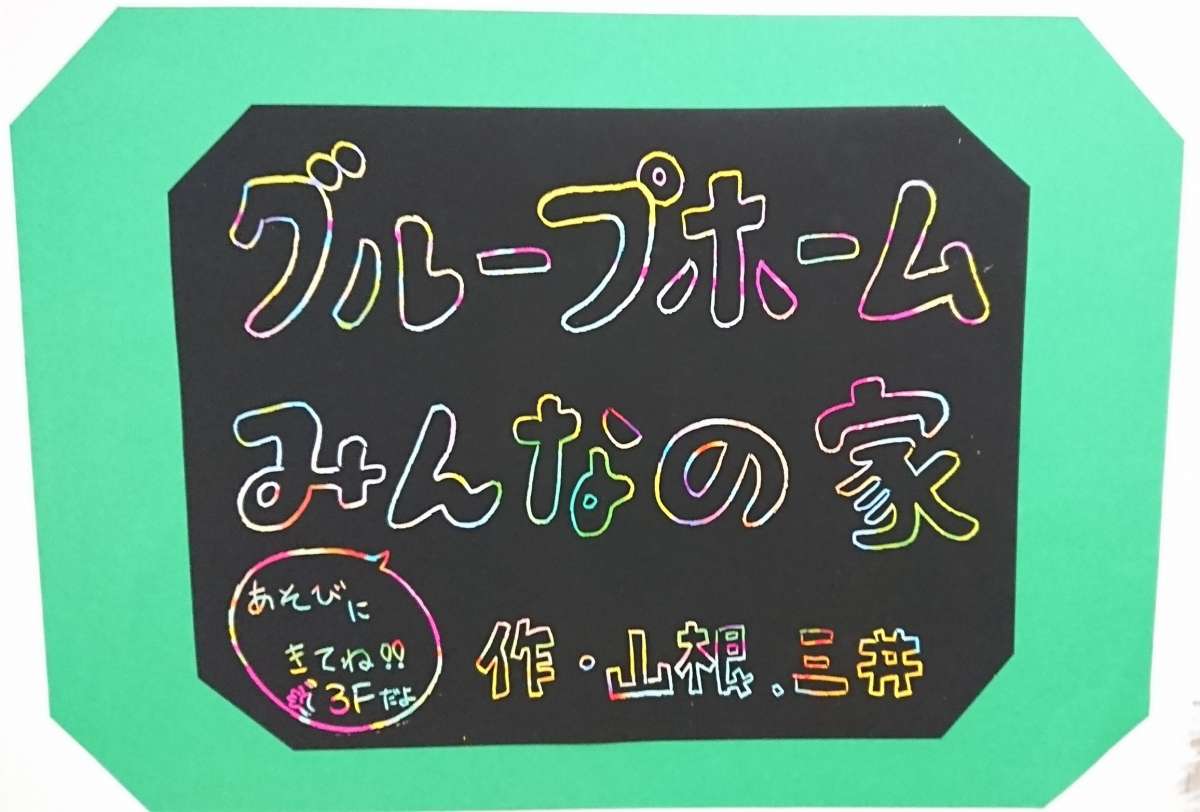 グループホーム
みんなの家
あそびに
きてね!!
3Fだよ
作・山根.三井